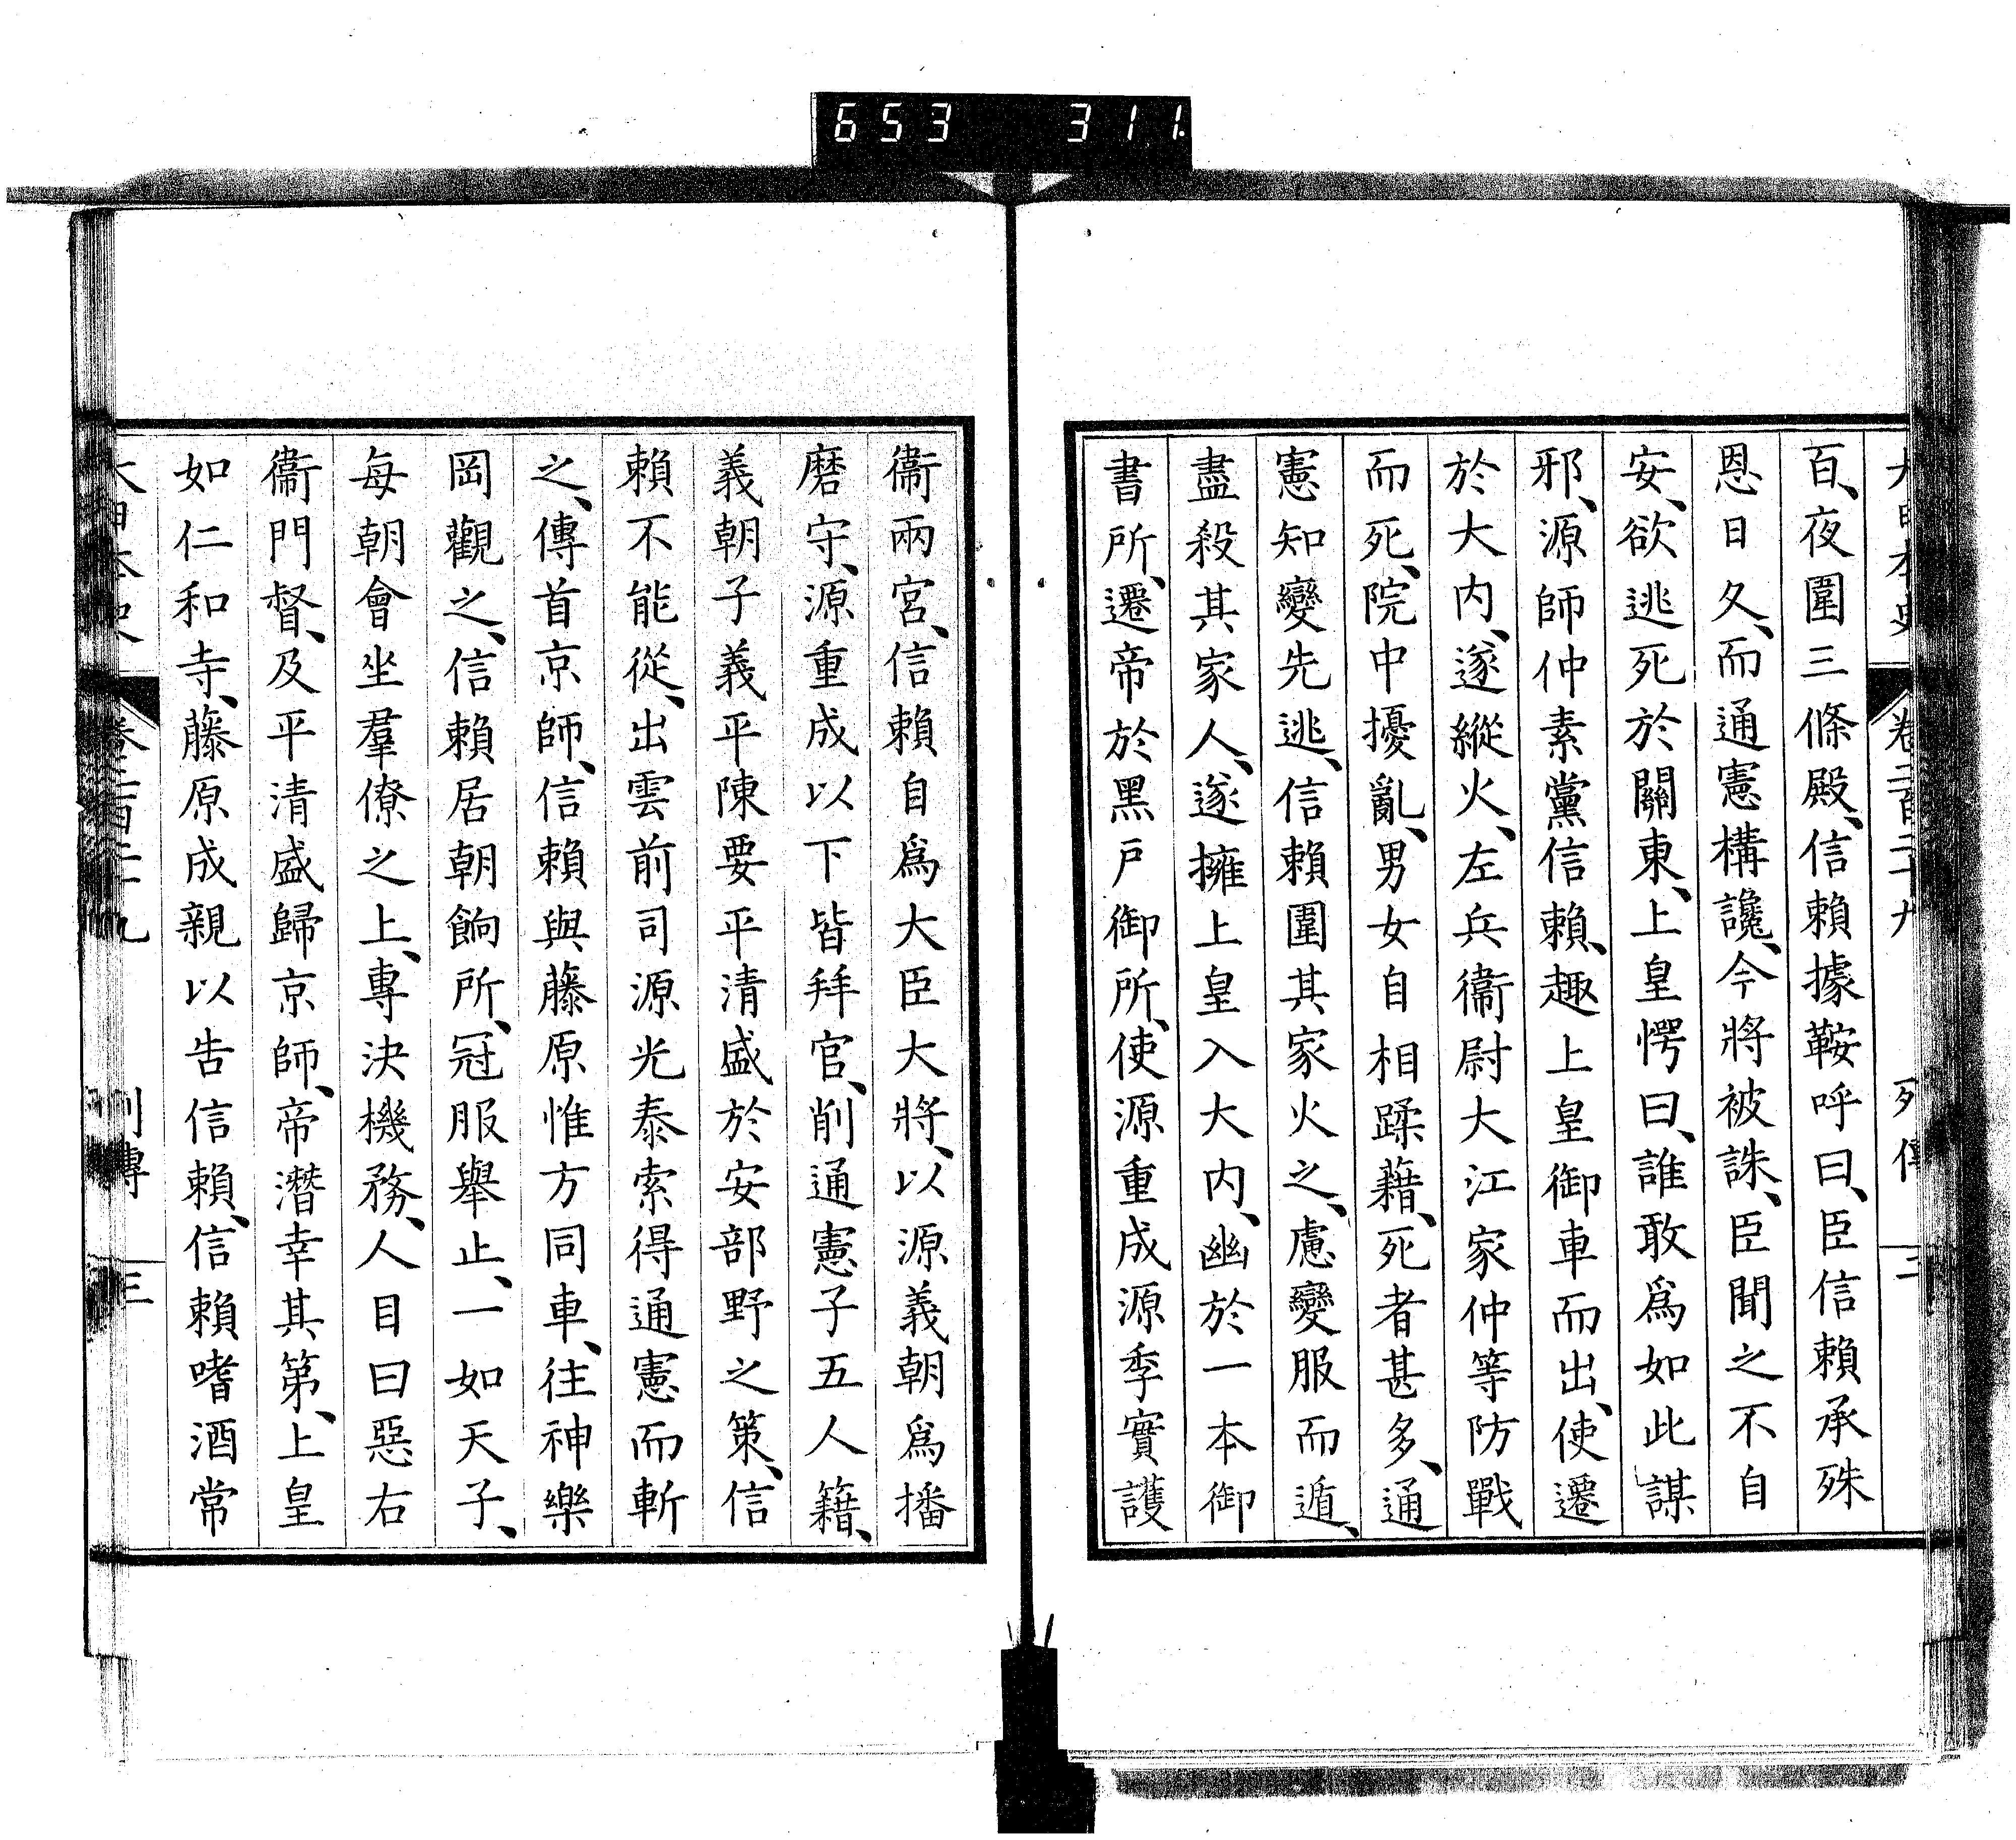 653 311
百、夜圍三條殿、信賴據鞍呼曰、臣信賴承殊
恩日久、而通憲構讒、今將被誅、臣聞之不自
安、欲逃死於關東、上皇愕曰、誰敢爲如此謀
邪、源師仲素黨信賴、趣上皇御車而出、使遷
於大内、遂縱火、左兵衞尉大江家仲等防戰
而死、院中擾亂、男女自相蹂藉、死者甚多、通
憲知變先逃、信賴圍其家火之、慮變服而遁、
盡殺其家人、遂擁上皇入大内、幽於一本御
書所、遷帝於黑戸御所、使源重成源季實護
衞兩宮、信賴自爲大臣大將、以源義朝爲播
磨守、源重成以下皆拜官、削通憲子五人籍、
義朝子義平陳要平清盛於安部野之策、信
賴不能從、出雲前司源光泰索得通憲而斬
之、傳首京師、信賴與藤原惟方同車、往神樂
岡觀之、信賴居朝餉所、冠服舉止、一如天子、
每朝會坐羣僚之上、專決機務、人目曰惡右
衞門督、及平清盛歸京師、帝潛幸其第、上皇
如仁和寺、藤原成親以告信賴、信賴嗜酒常
列傳 三